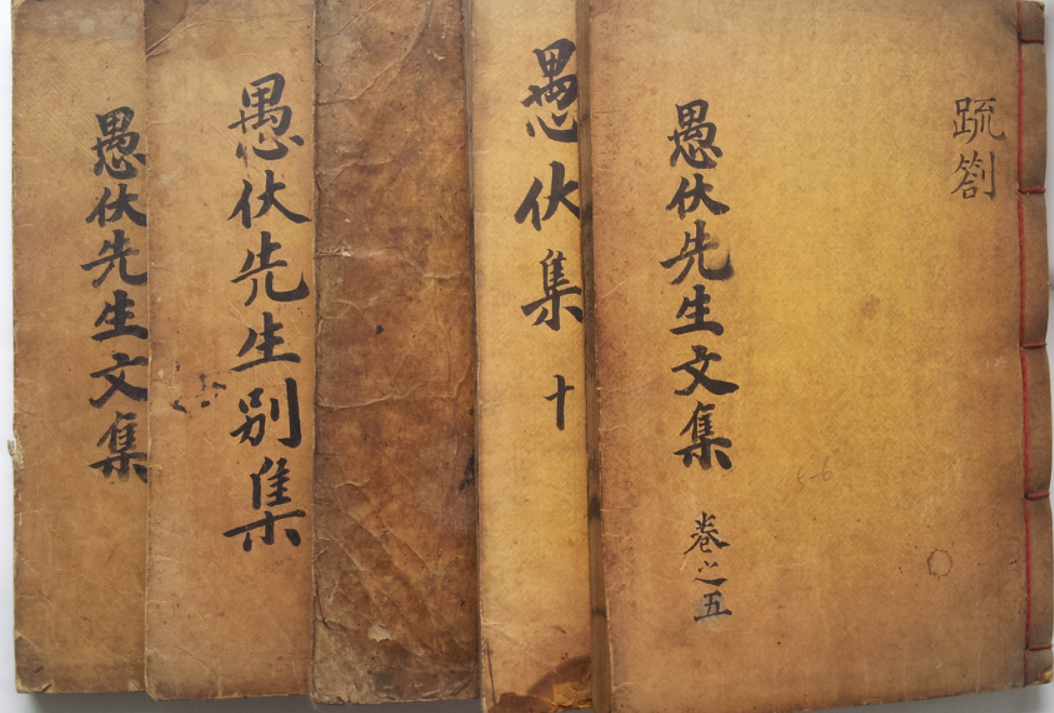 疏箚
愚伏先生文集
卷之五
5-6
愚伏集
十
愚伏先生別集
愚伏先生文集